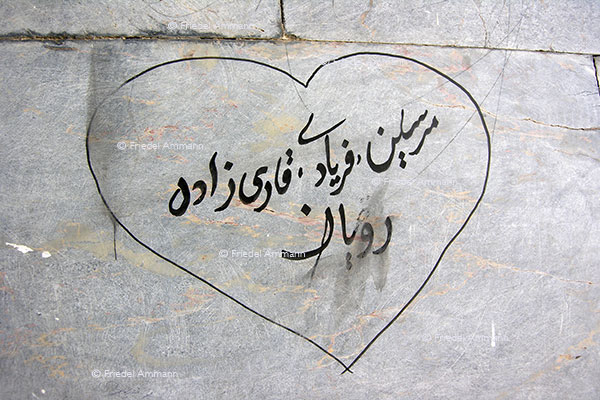 © Friedel Ammann
© Friedel Ammann
مرسلین، فریادی، قاری زاده
رویان
© Friedel Ammann
© Friedel Ammann